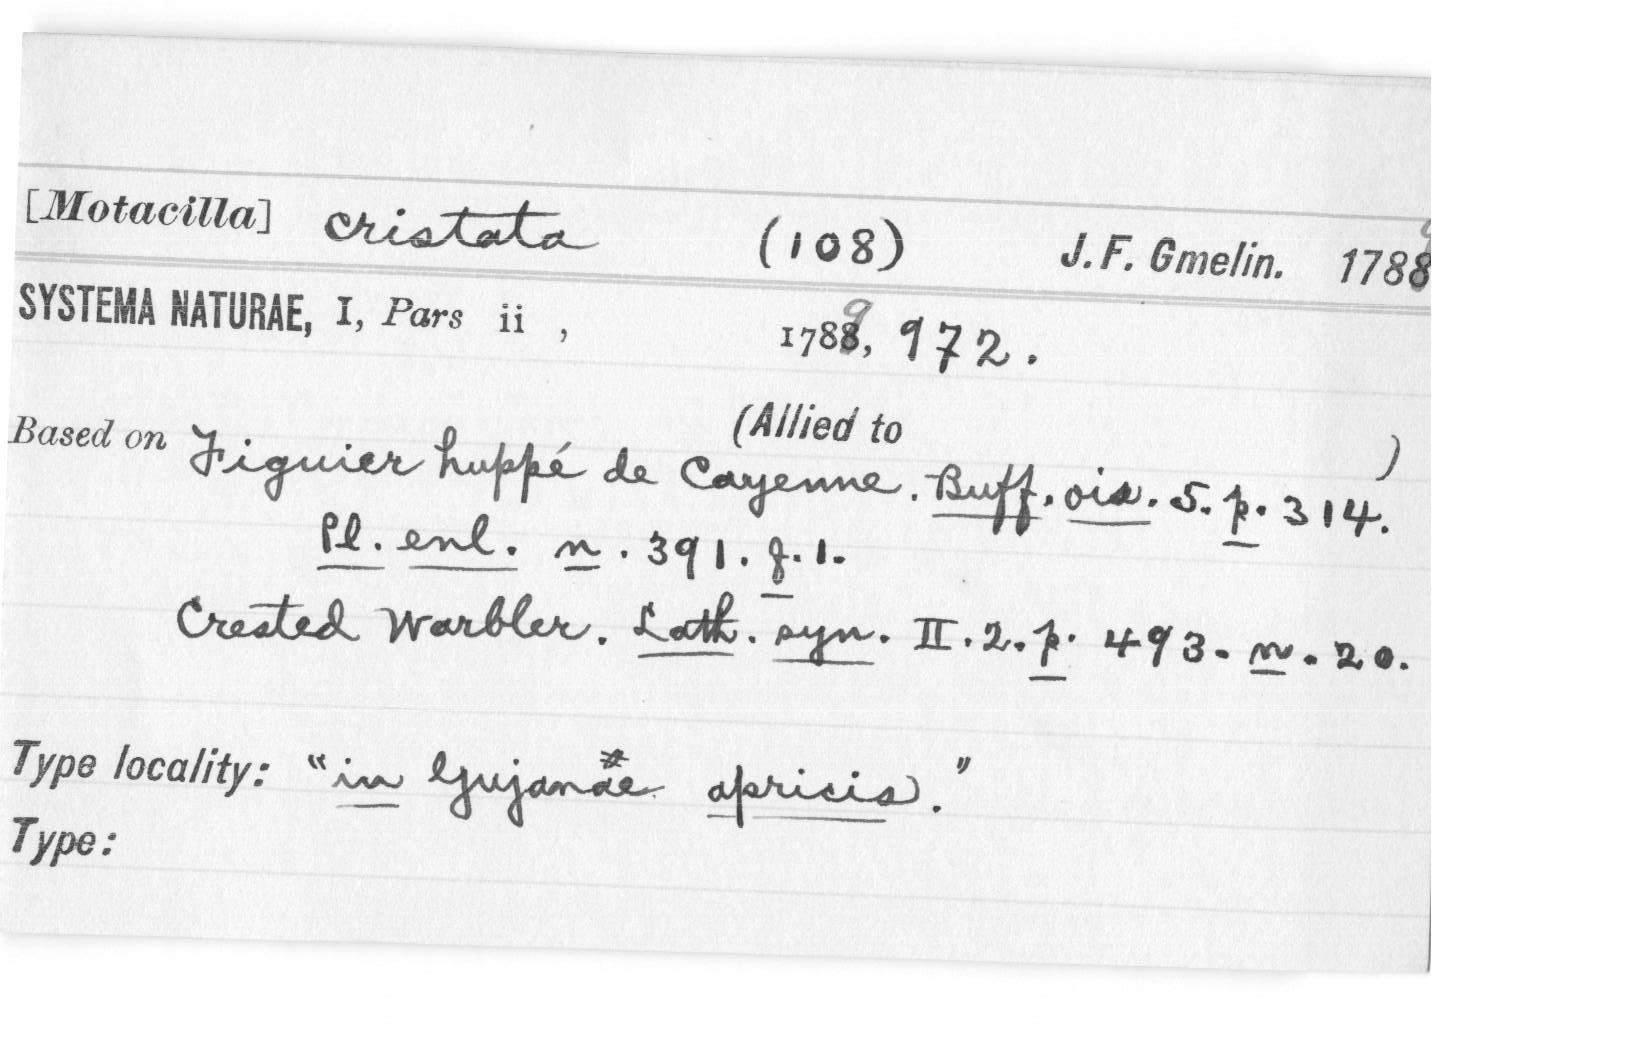 [Motacilla] cristata (108) J. F. Gmelin. 1789
SYSTEMA NATURAE, I, Pars ii , 1789, 972.
(Allied to )
Based on Figuier huppé de Cayenne. Buff. ois. 5. p. 314.
Pl. enl. n. 391. f. 1.
Crested Warbler. Lath. syn. II. 2. p. 493. n. 20.
Type locality: "in Gujanae apricis."
Type: